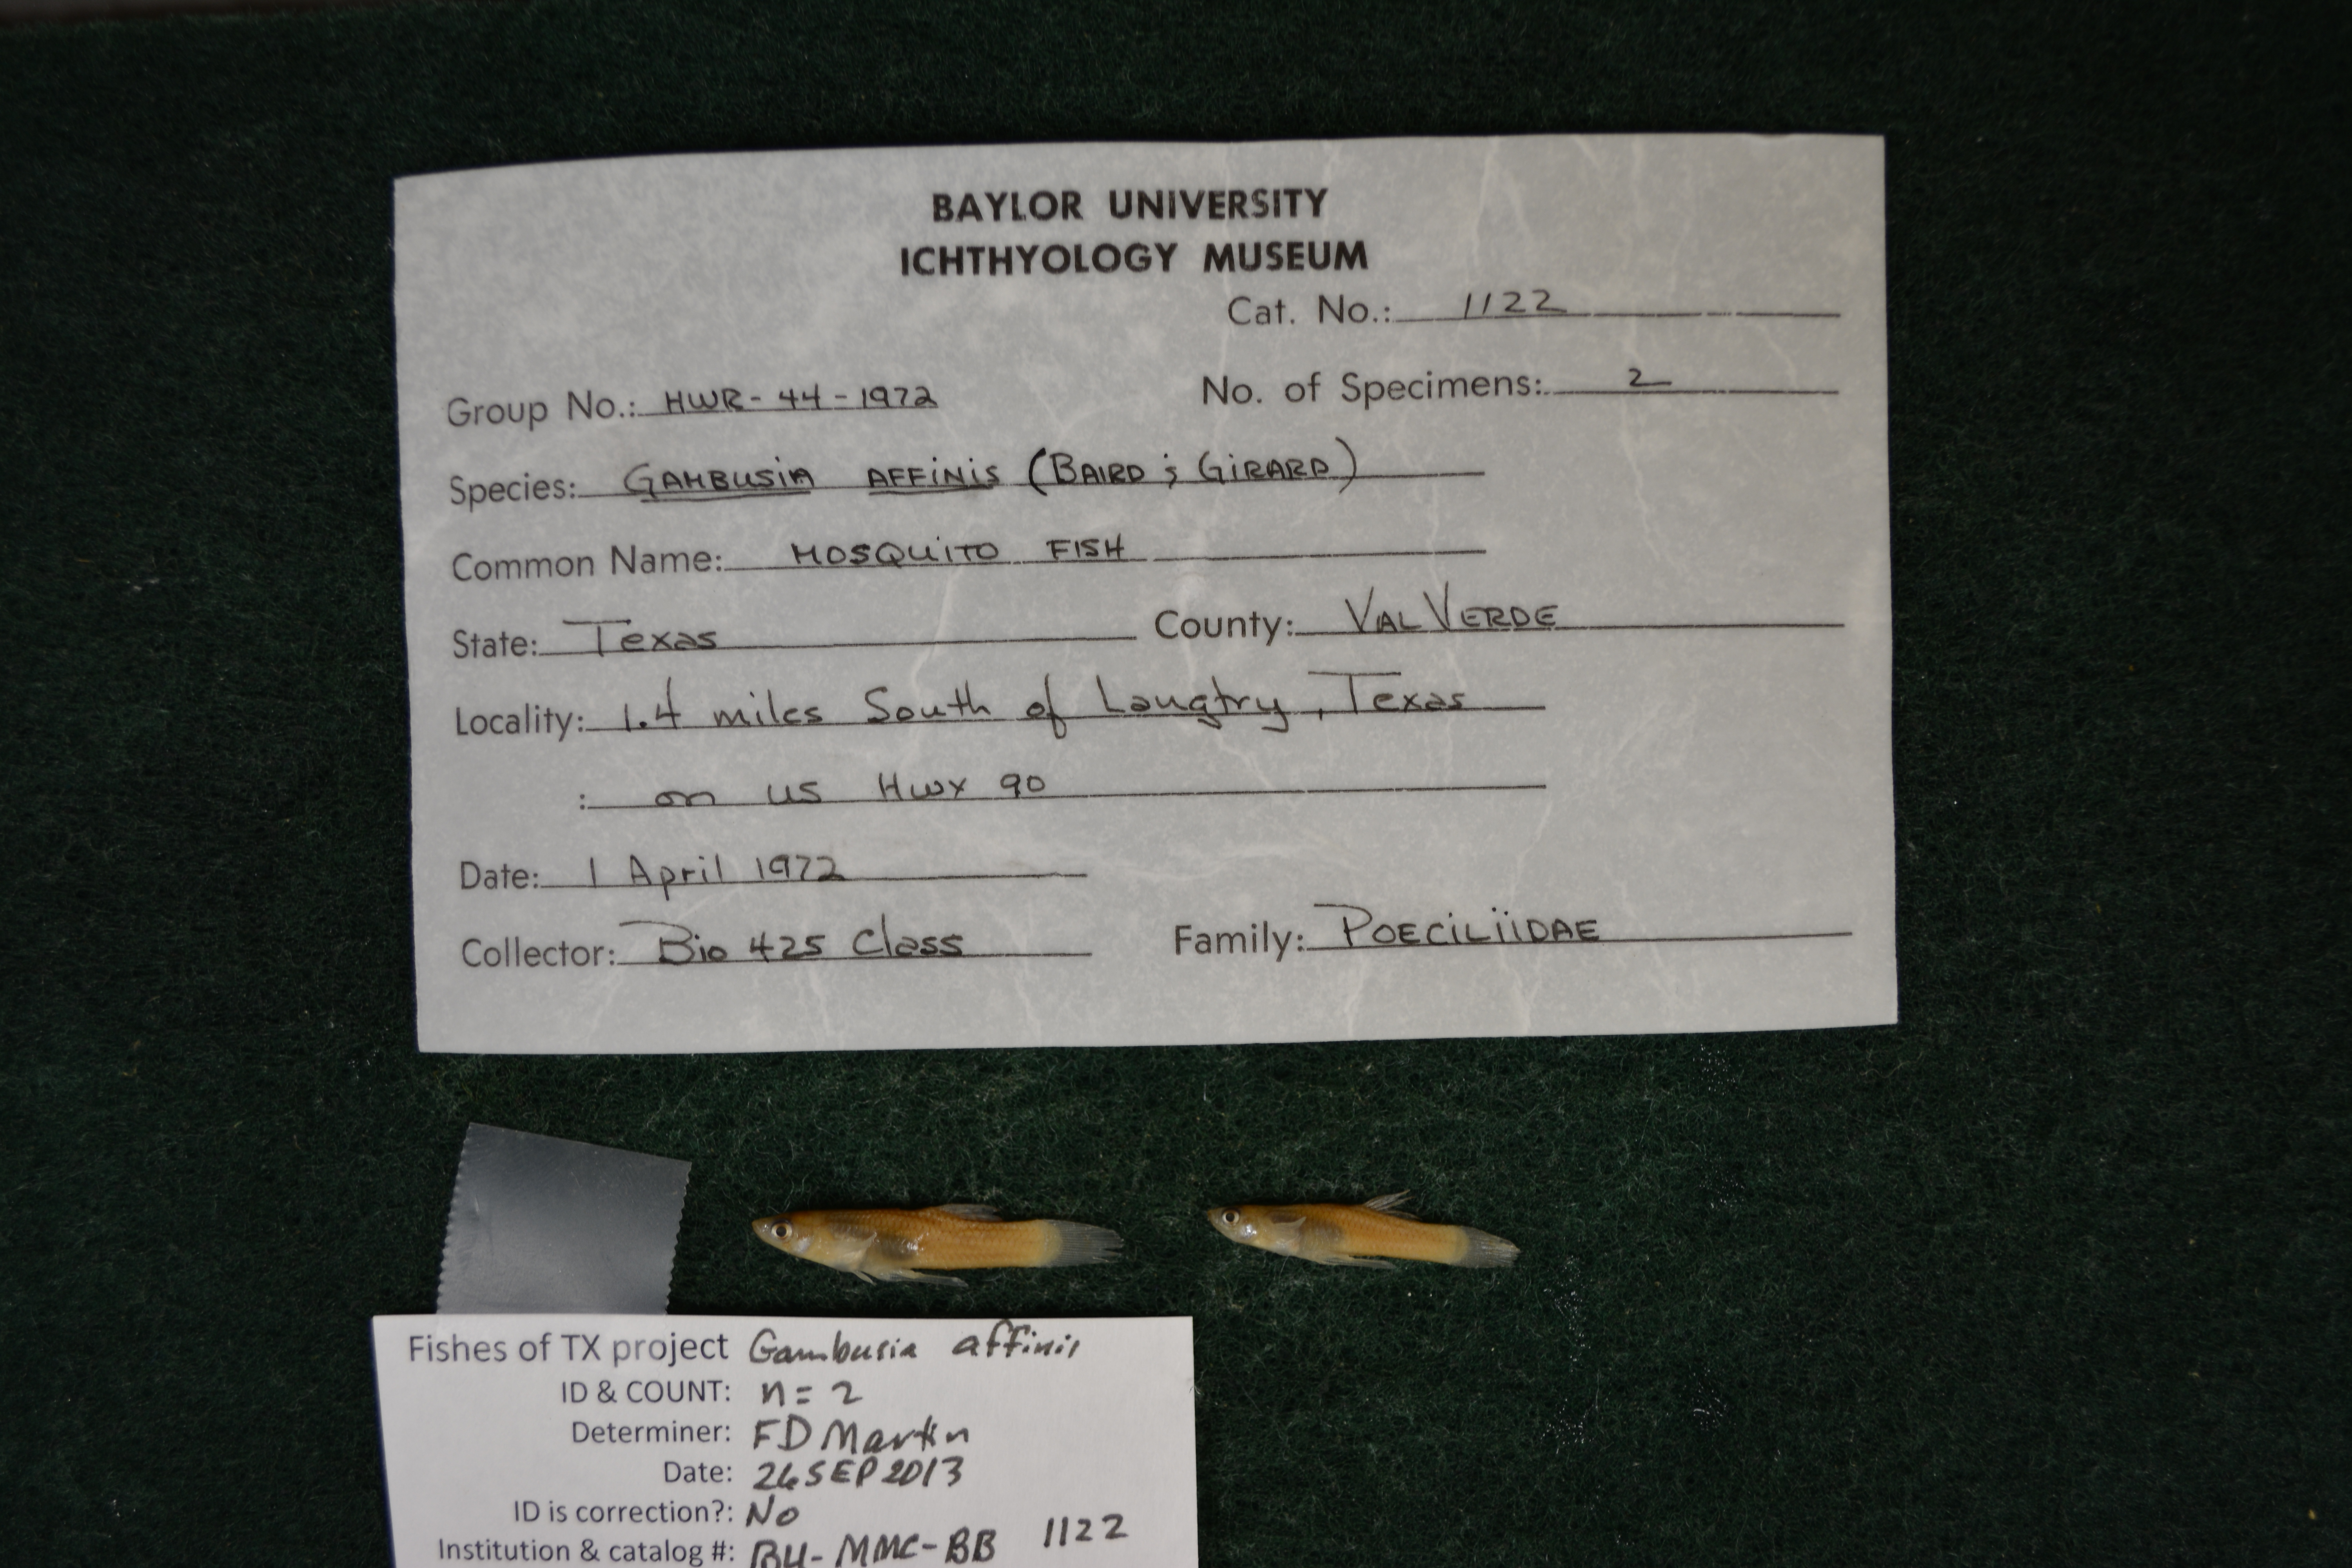 BAYLOR UNIVERSITY
ICHTHYOLOGY MUSEUM
Cat. No.: 1122
Group No.: HWR-44-1972 No. of Specimens: 2
Species: GAMBUSIA AFFINIS (BAIRD & GIRARD)
Common Name: MOSQUITO FISH
State: Texas County: VAL VERDE
Locality: 1.4 miles South of Langtry, Texas
: on US Hwy 90
Date: 1 April 1972
Collector: Bio 425 Class Family: POECILIIDAE
Fishes of TX project Gambusia affinis
ID & COUNT: n=2
Determiner: FD Martin
Date: 26 SEP 2013
ID is correction?: No
Institution & catalog #: BU-MMC-BB 1122